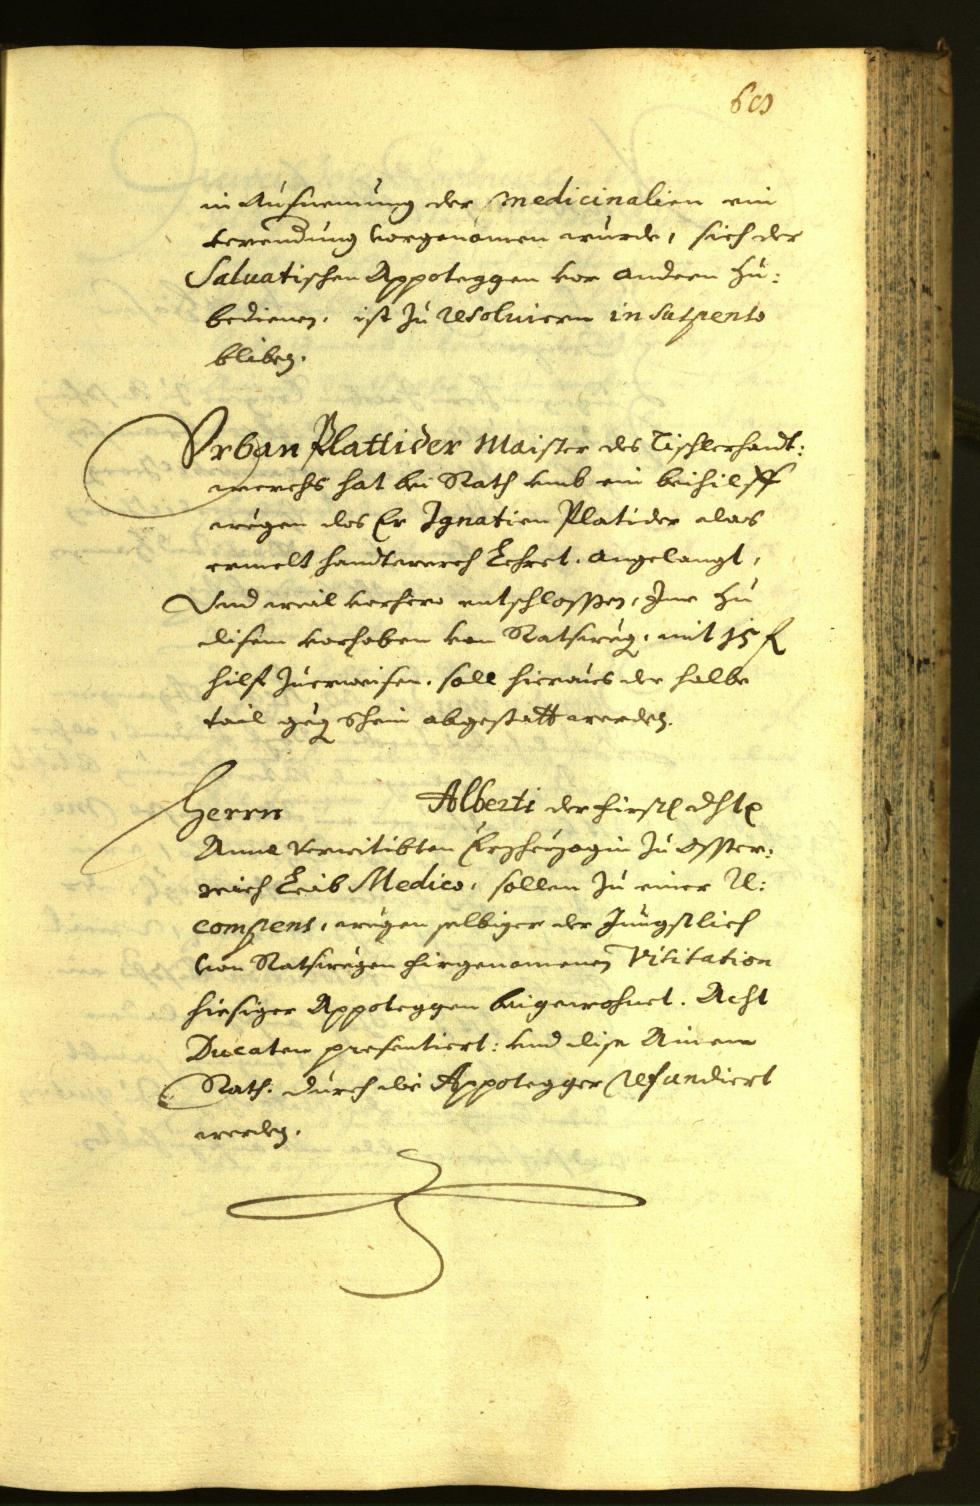 in Aufnemung der medicinalien ein
verendung vorgenomen wurde, sich der
Saluatischen Appoteggen vor andern zu:
bedienen, ist zu resoluiern in suspenso
bliben.
Vrban Plattider Maister des Tischlerhandt:
werchs hat bei Rath umb ein beihilff
wegen das Er Ignatien Platider das
ermelt handtwerch Lehret, angelangt,
Und weil vorhero entschlossen, Ime zu
disem vorhaben von Rathsweg, mit 15 f
hilf zuerweisen, soll hieraus der halbe
tail geg Schein abgestatt werden.
Herrn Alberti der Fürstl Dhlt
Anna verwitibten Erzherzogin zu Osster:
reich Leib Medico, sollen zu einer Re:
compens, wegen selbiger der Jüngstlich
von Rathswegen fürgenomenen Visitation
hiesiger Appoteggen beigewohnet. Acht
Ducaten presentiert: und dise Ainem
Rath: durch die Appotegger refundiert
werden.